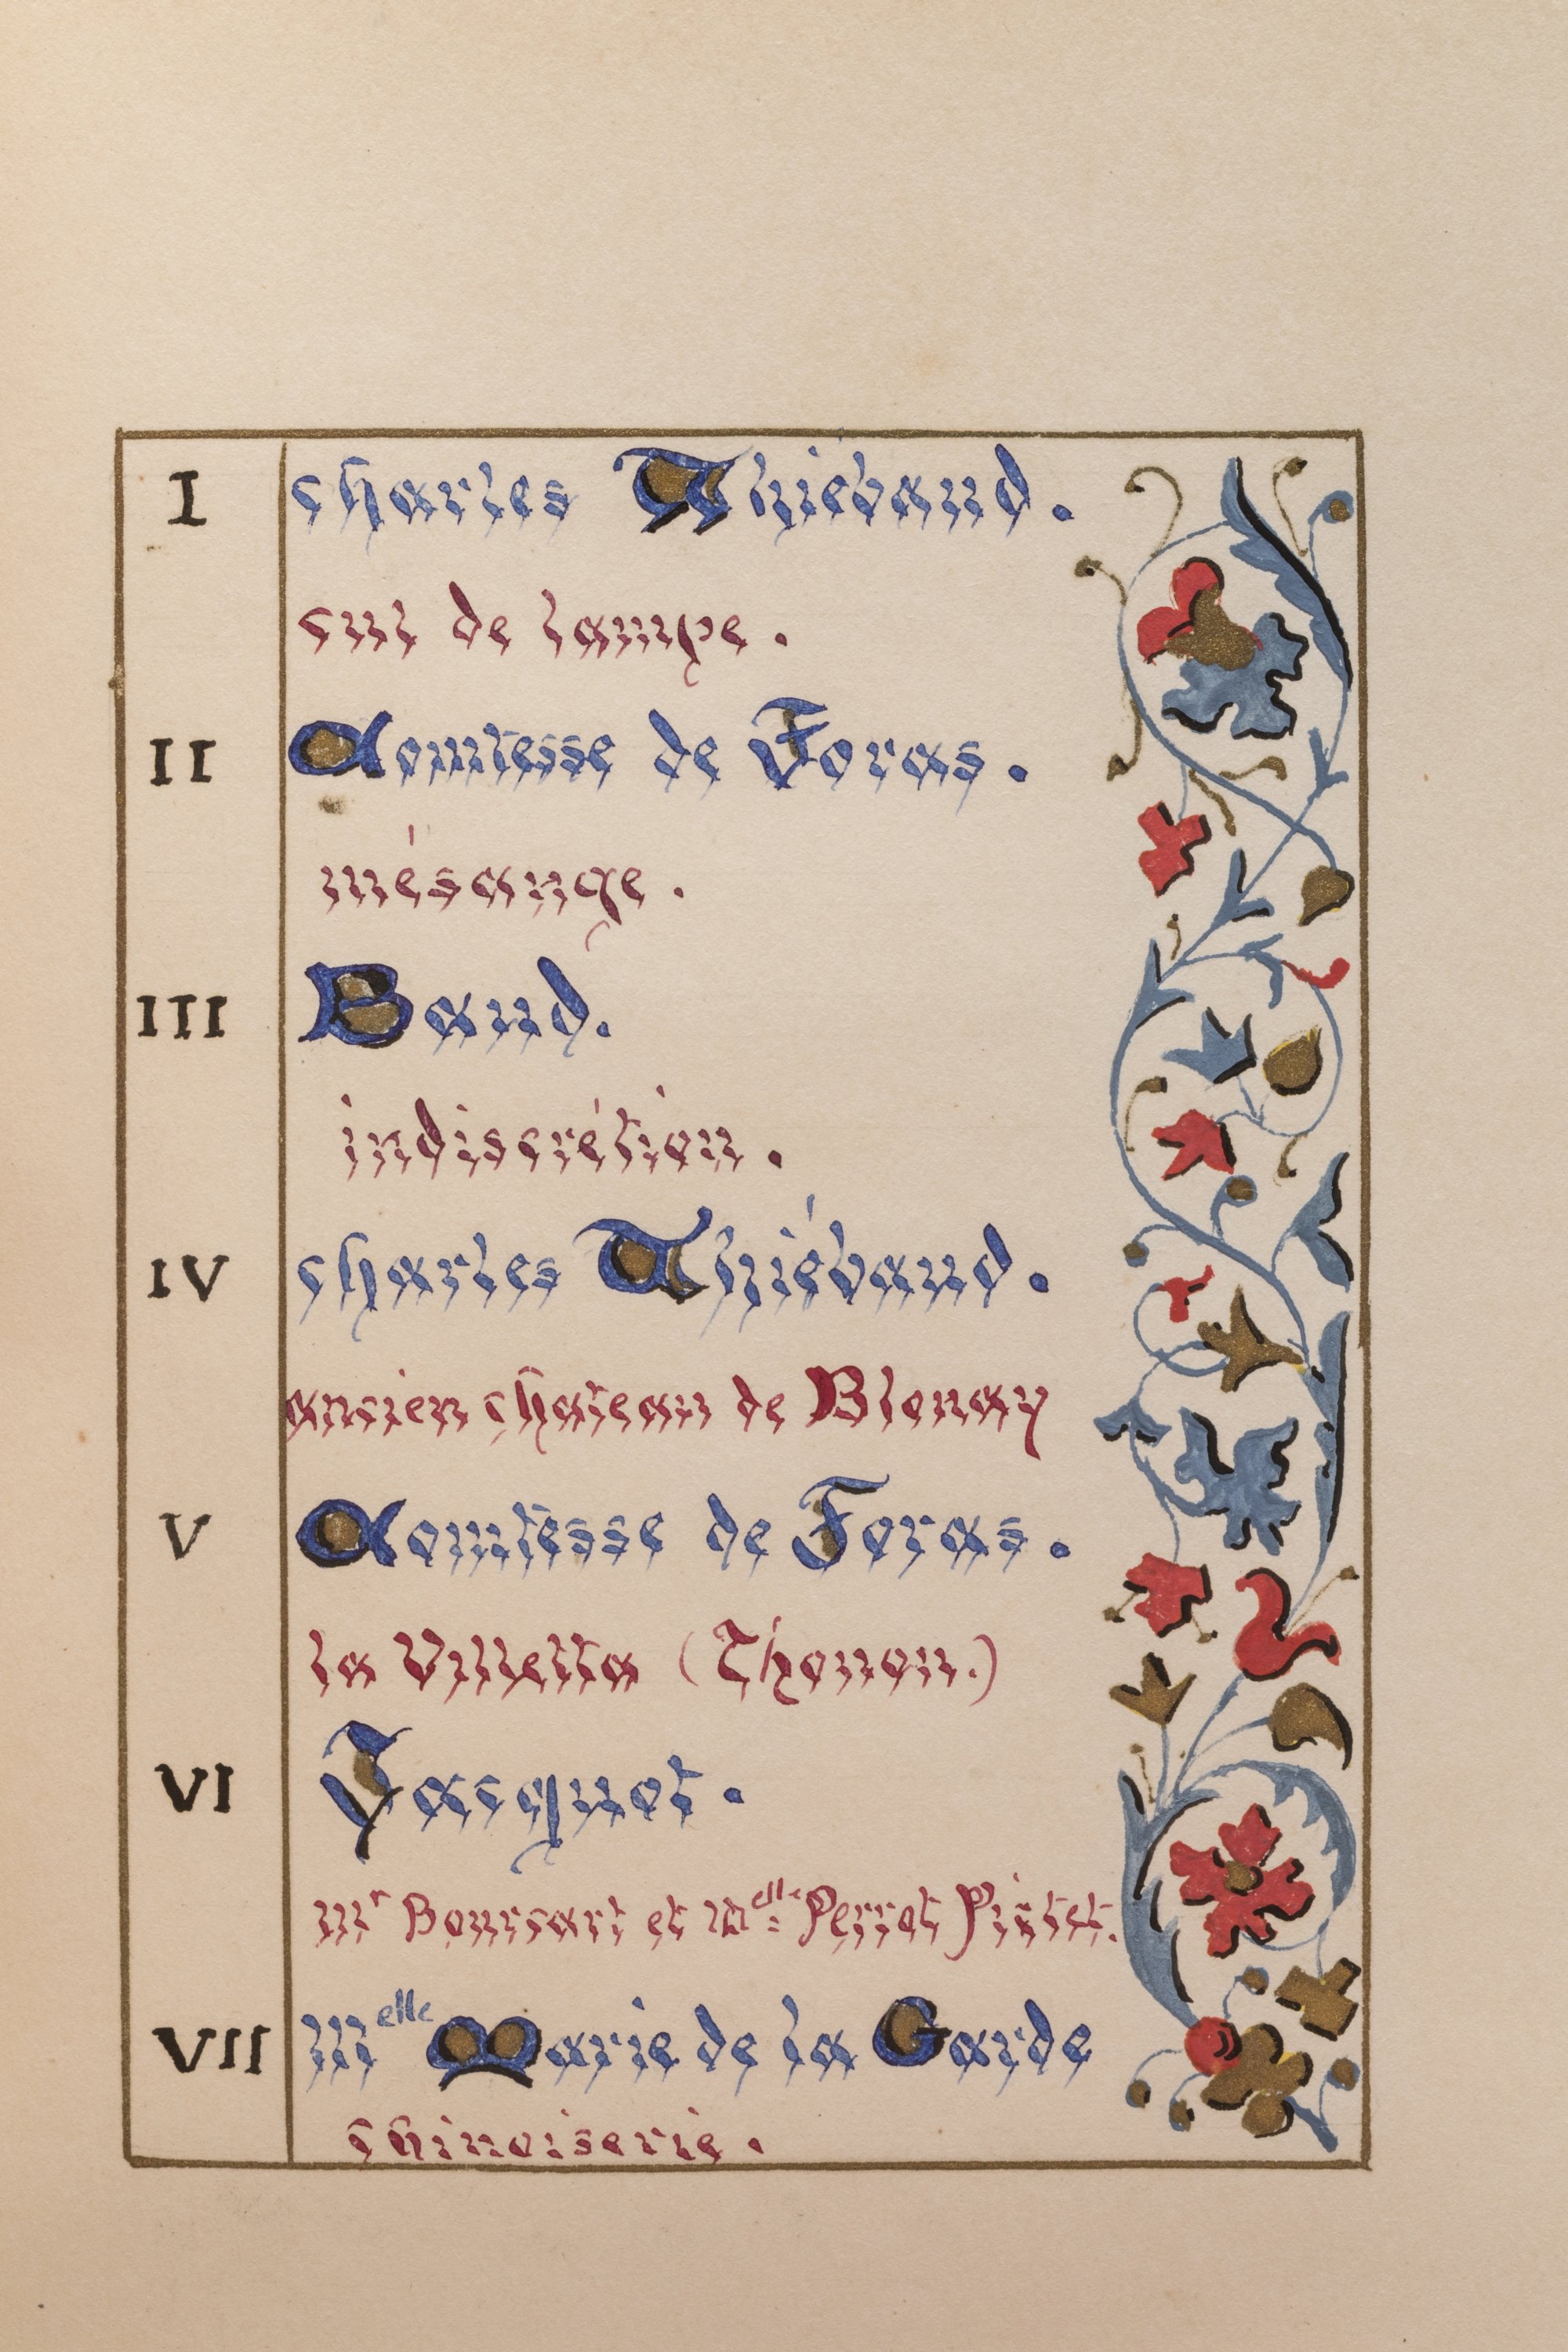 I charles Thiébaud.
cul de lampe.
II Comtesse de Foras.
mésange.
III Baud.
indiscrétion.
IV charles Thiébaud.
ancien chateau de Blonay
V Comtesse de Foras.
la Villetta (Thonon.)
VI Jacquot.
Mr Boursart et Melle Perrot Pistet.
VII Melle Marie de la Garde
chinoiserie.